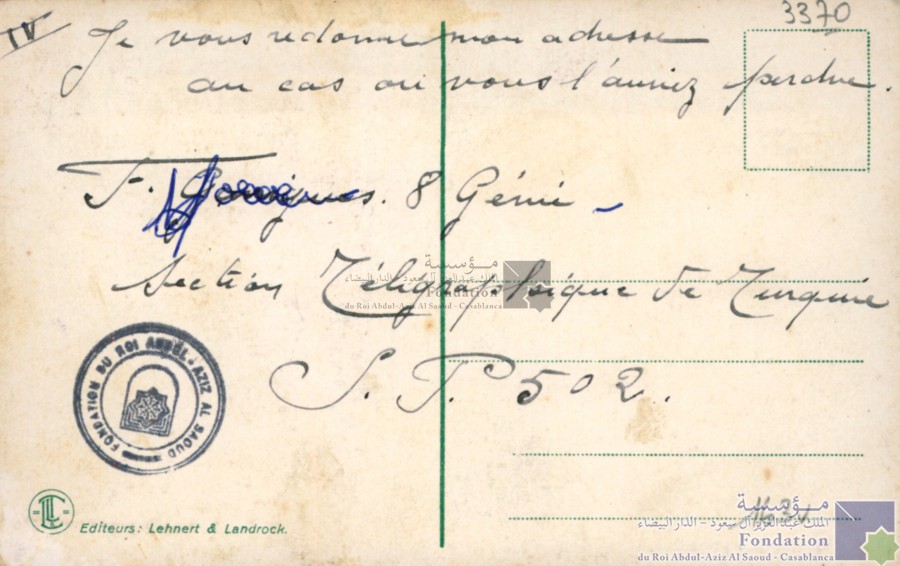 3370
IV
Je vous redonne mon adresse
au cas où vous l'auriez perdue.
F. 8 Génie
Section Télégraphique de Turquie
S. P. 502.
مؤسسة
الملك عبد العزيز آل سعود - الدار البيضاء
Fondation
du Roi Abdul-Aziz Al Saoud - Casablanca
FONDATION DU ROI ABDEL-AZIZ AL SAOUD
LL
Editeurs: Lehnert & Landrock.
مؤسسة
الملك عبد العزيز آل سعود - الدار البيضاء
Fondation
du Roi Abdul-Aziz Al Saoud - Casablanca